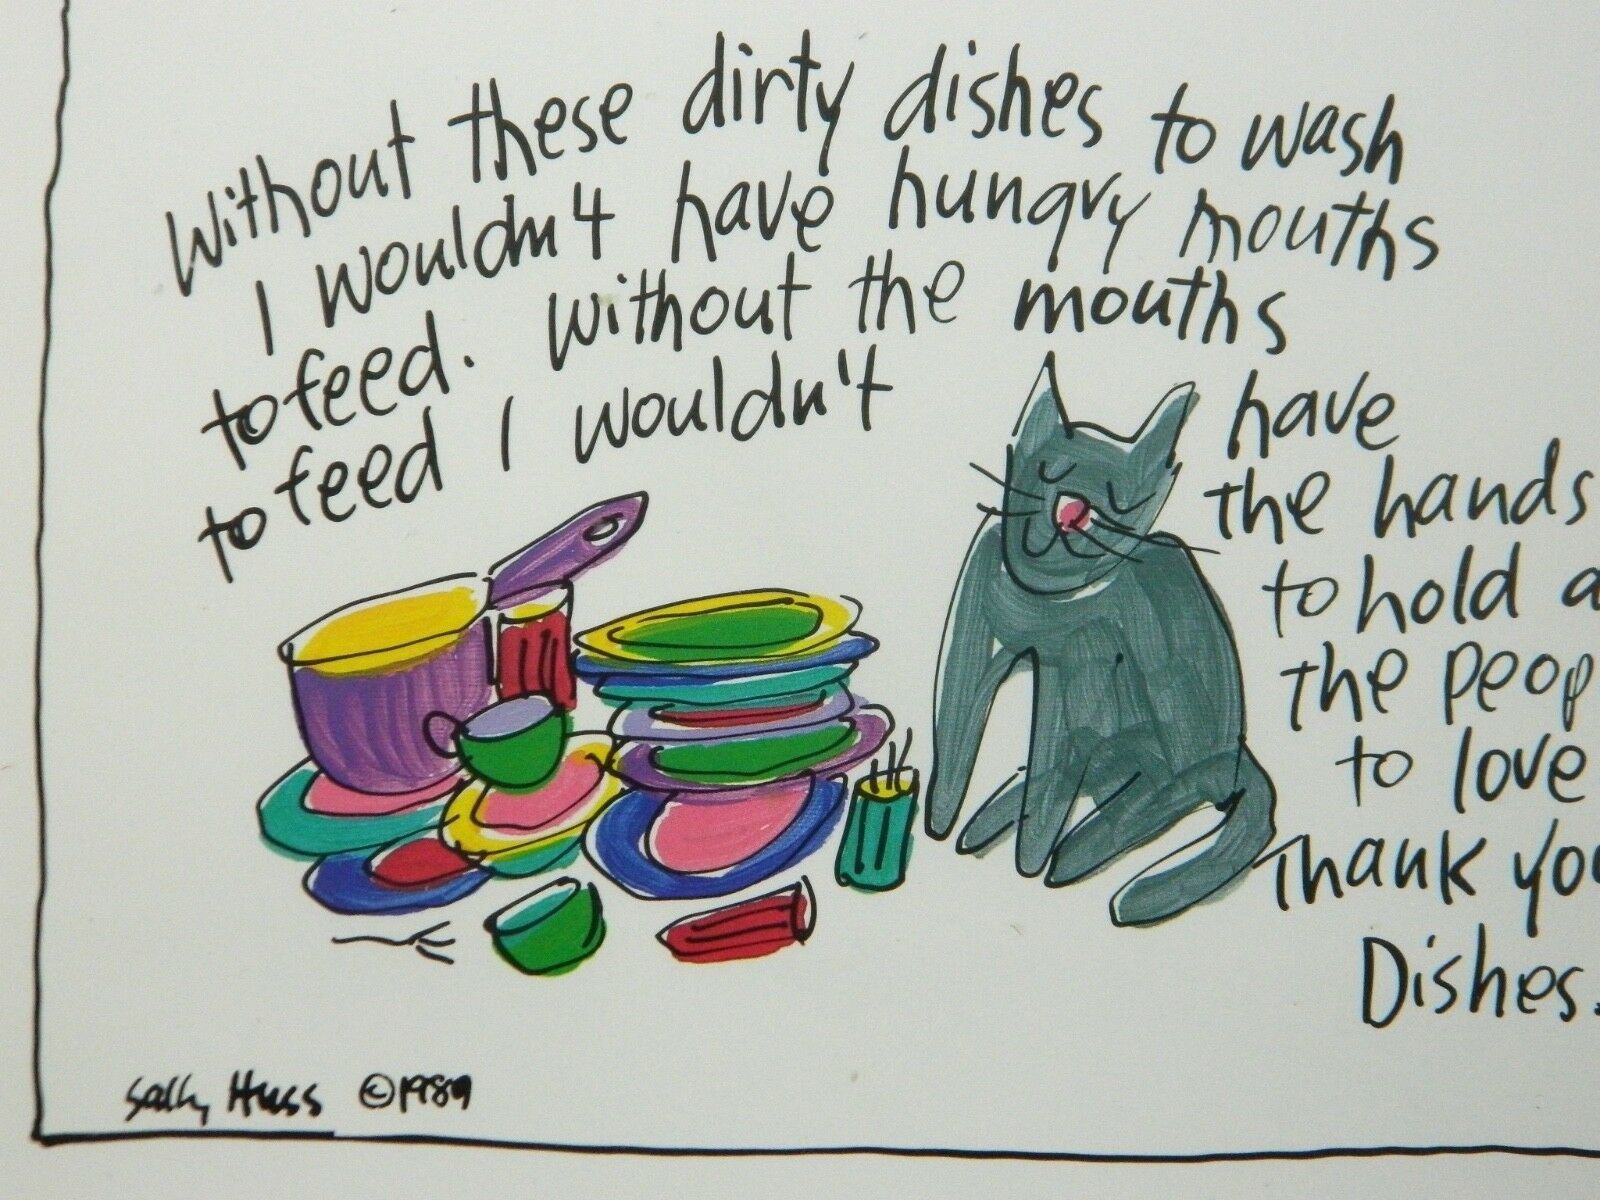 Without these dirty dishes to wash
I wouldn't have hungry mouths
to feed. Without the mouths
to feed I wouldn't have
the hands
to hold a
the peop
to love
Thank you
Dishes.
Sally Huss ©1989